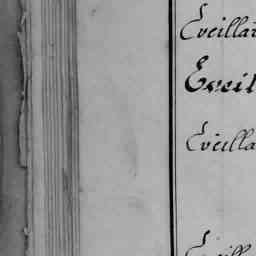 Eveilla
Eveil
Eveilla
Eveill